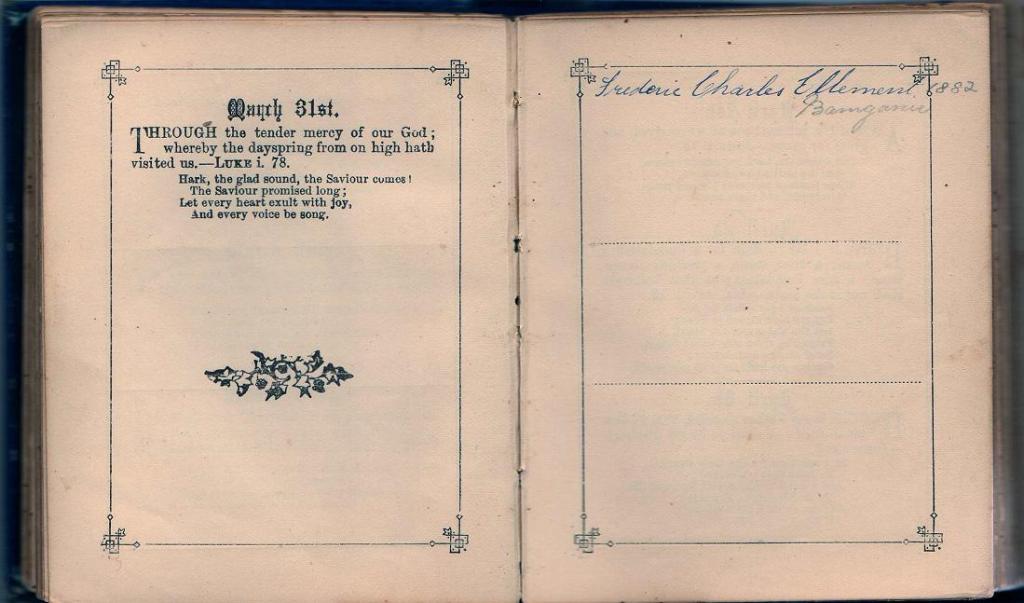 March 31st.
THROUGH the tender mercy of our God;
whereby the dayspring from on high hath
visited us.—LUKE i. 78.
Hark, the glad sound, the Saviour comes!
The Saviour promised long;
Let every heart exult with joy,
And every voice be song.
Frederic Charles Ellement 1882